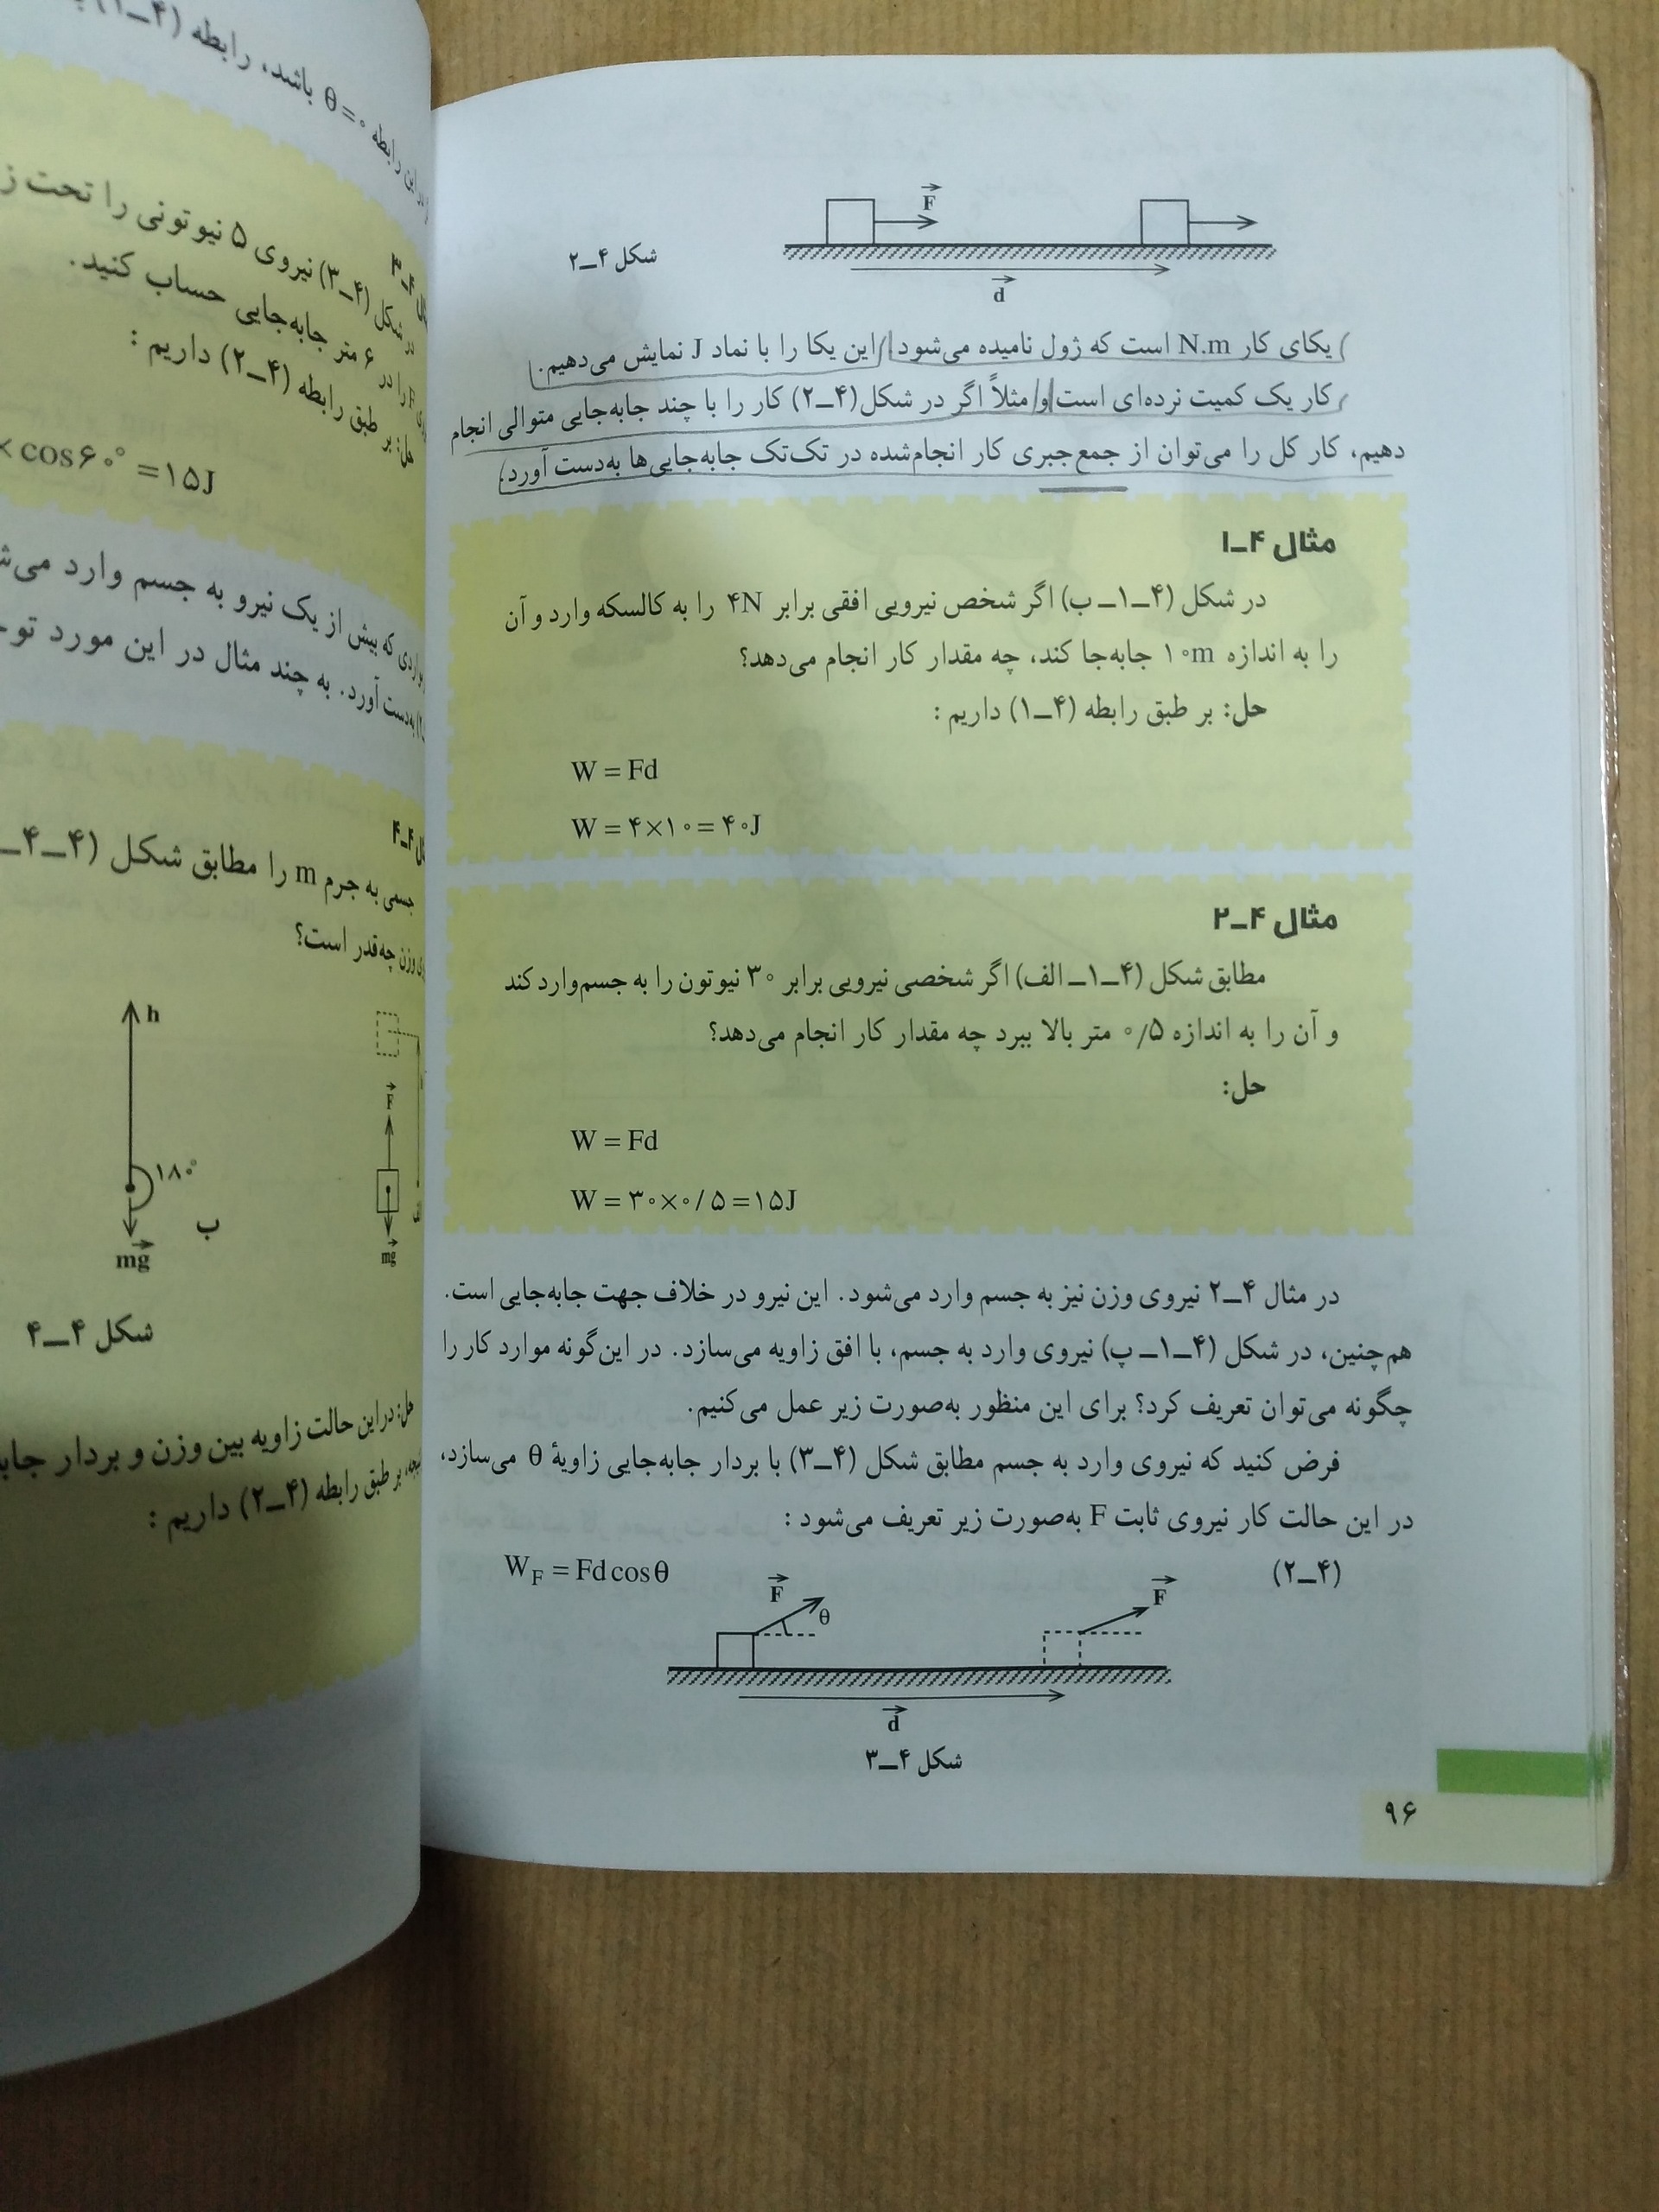 F
شکل ۴ــ۲
d
یکای کار N.m است که ژول نامیده می‌شود. این یکا را با نماد J نمایش می‌دهیم.
کار یک کمیت نرده‌ای است و مثلاً اگر در شکل (۴ــ۲) کار را با چند جابه‌جایی متوالی انجام
دهیم، کار کل را می‌توان از جمع جبری کار انجام‌شده در تک‌تک جابه‌جایی‌ها به‌دست آورد.
مثال ۴ــ۱
در شکل (۴ــ۱ــ ب) اگر شخص نیرویی افقی برابر ۴N را به کالسکه وارد و آن
را به اندازه ۱۰m جابه‌جا کند، چه مقدار کار انجام می‌دهد؟
حل: بر طبق رابطه (۴ــ۱) داریم :
W = Fd
W = ۴×۱۰ = ۴۰J
مثال ۴ــ۲
مطابق شکل (۴ــ۱ــ الف) اگر شخصی نیرویی برابر ۳۰ نیوتون را به جسم وارد کند
و آن را به اندازه ۰/۵ متر بالا ببرد چه مقدار کار انجام می‌دهد؟
حل:
W = Fd
W = ۳۰×۰/۵ = ۱۵J
در مثال ۴ــ۲ نیروی وزن نیز به جسم وارد می‌شود. این نیرو در خلاف جهت جابه‌جایی است.
هم‌چنین، در شکل (۴ــ۱ــ پ) نیروی وارد به جسم، با افق زاویه می‌سازد. در این‌گونه موارد کار را
چگونه می‌توان تعریف کرد؟ برای این منظور به‌صورت زیر عمل می‌کنیم.
فرض کنید که نیروی وارد به جسم مطابق شکل (۴ــ۳) با بردار جابه‌جایی زاویهٔ θ می‌سازد،
در این حالت کار نیروی ثابت F به‌صورت زیر تعریف می‌شود :
(۴ــ۲) W_F = Fd cosθ
F θ F
d
شکل ۴ــ۳
۹۶
این رابطه θ=۰ باشد، رابطه (۴ــ۱)
در شکل (۴ــ۳) نیروی ۵ نیوتونی را تحت
را در ۶ متر جابه‌جایی حساب کنید.
حل: بر طبق رابطه (۴ــ۲) داریم :
× cos۶۰° = ۱۵J
که بیش از یک نیرو به جسم وارد
به‌دست آورد. به چند مثال در این مورد
جسمی به جرم m را مطابق شکل (۴ــ۴ــ
وزن چه‌قدر است؟
h
F
۱۸۰°
ب
mg
mg
شکل ۴ــ۴
حل: در این حالت زاویه بین وزن و بردار
بر طبق رابطه (۴ــ۲) داریم :